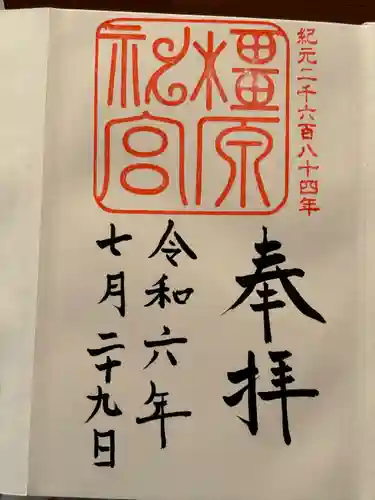 紀元二千六百八十四年
橿原神宮
奉拝
令和六年
七月二十九日